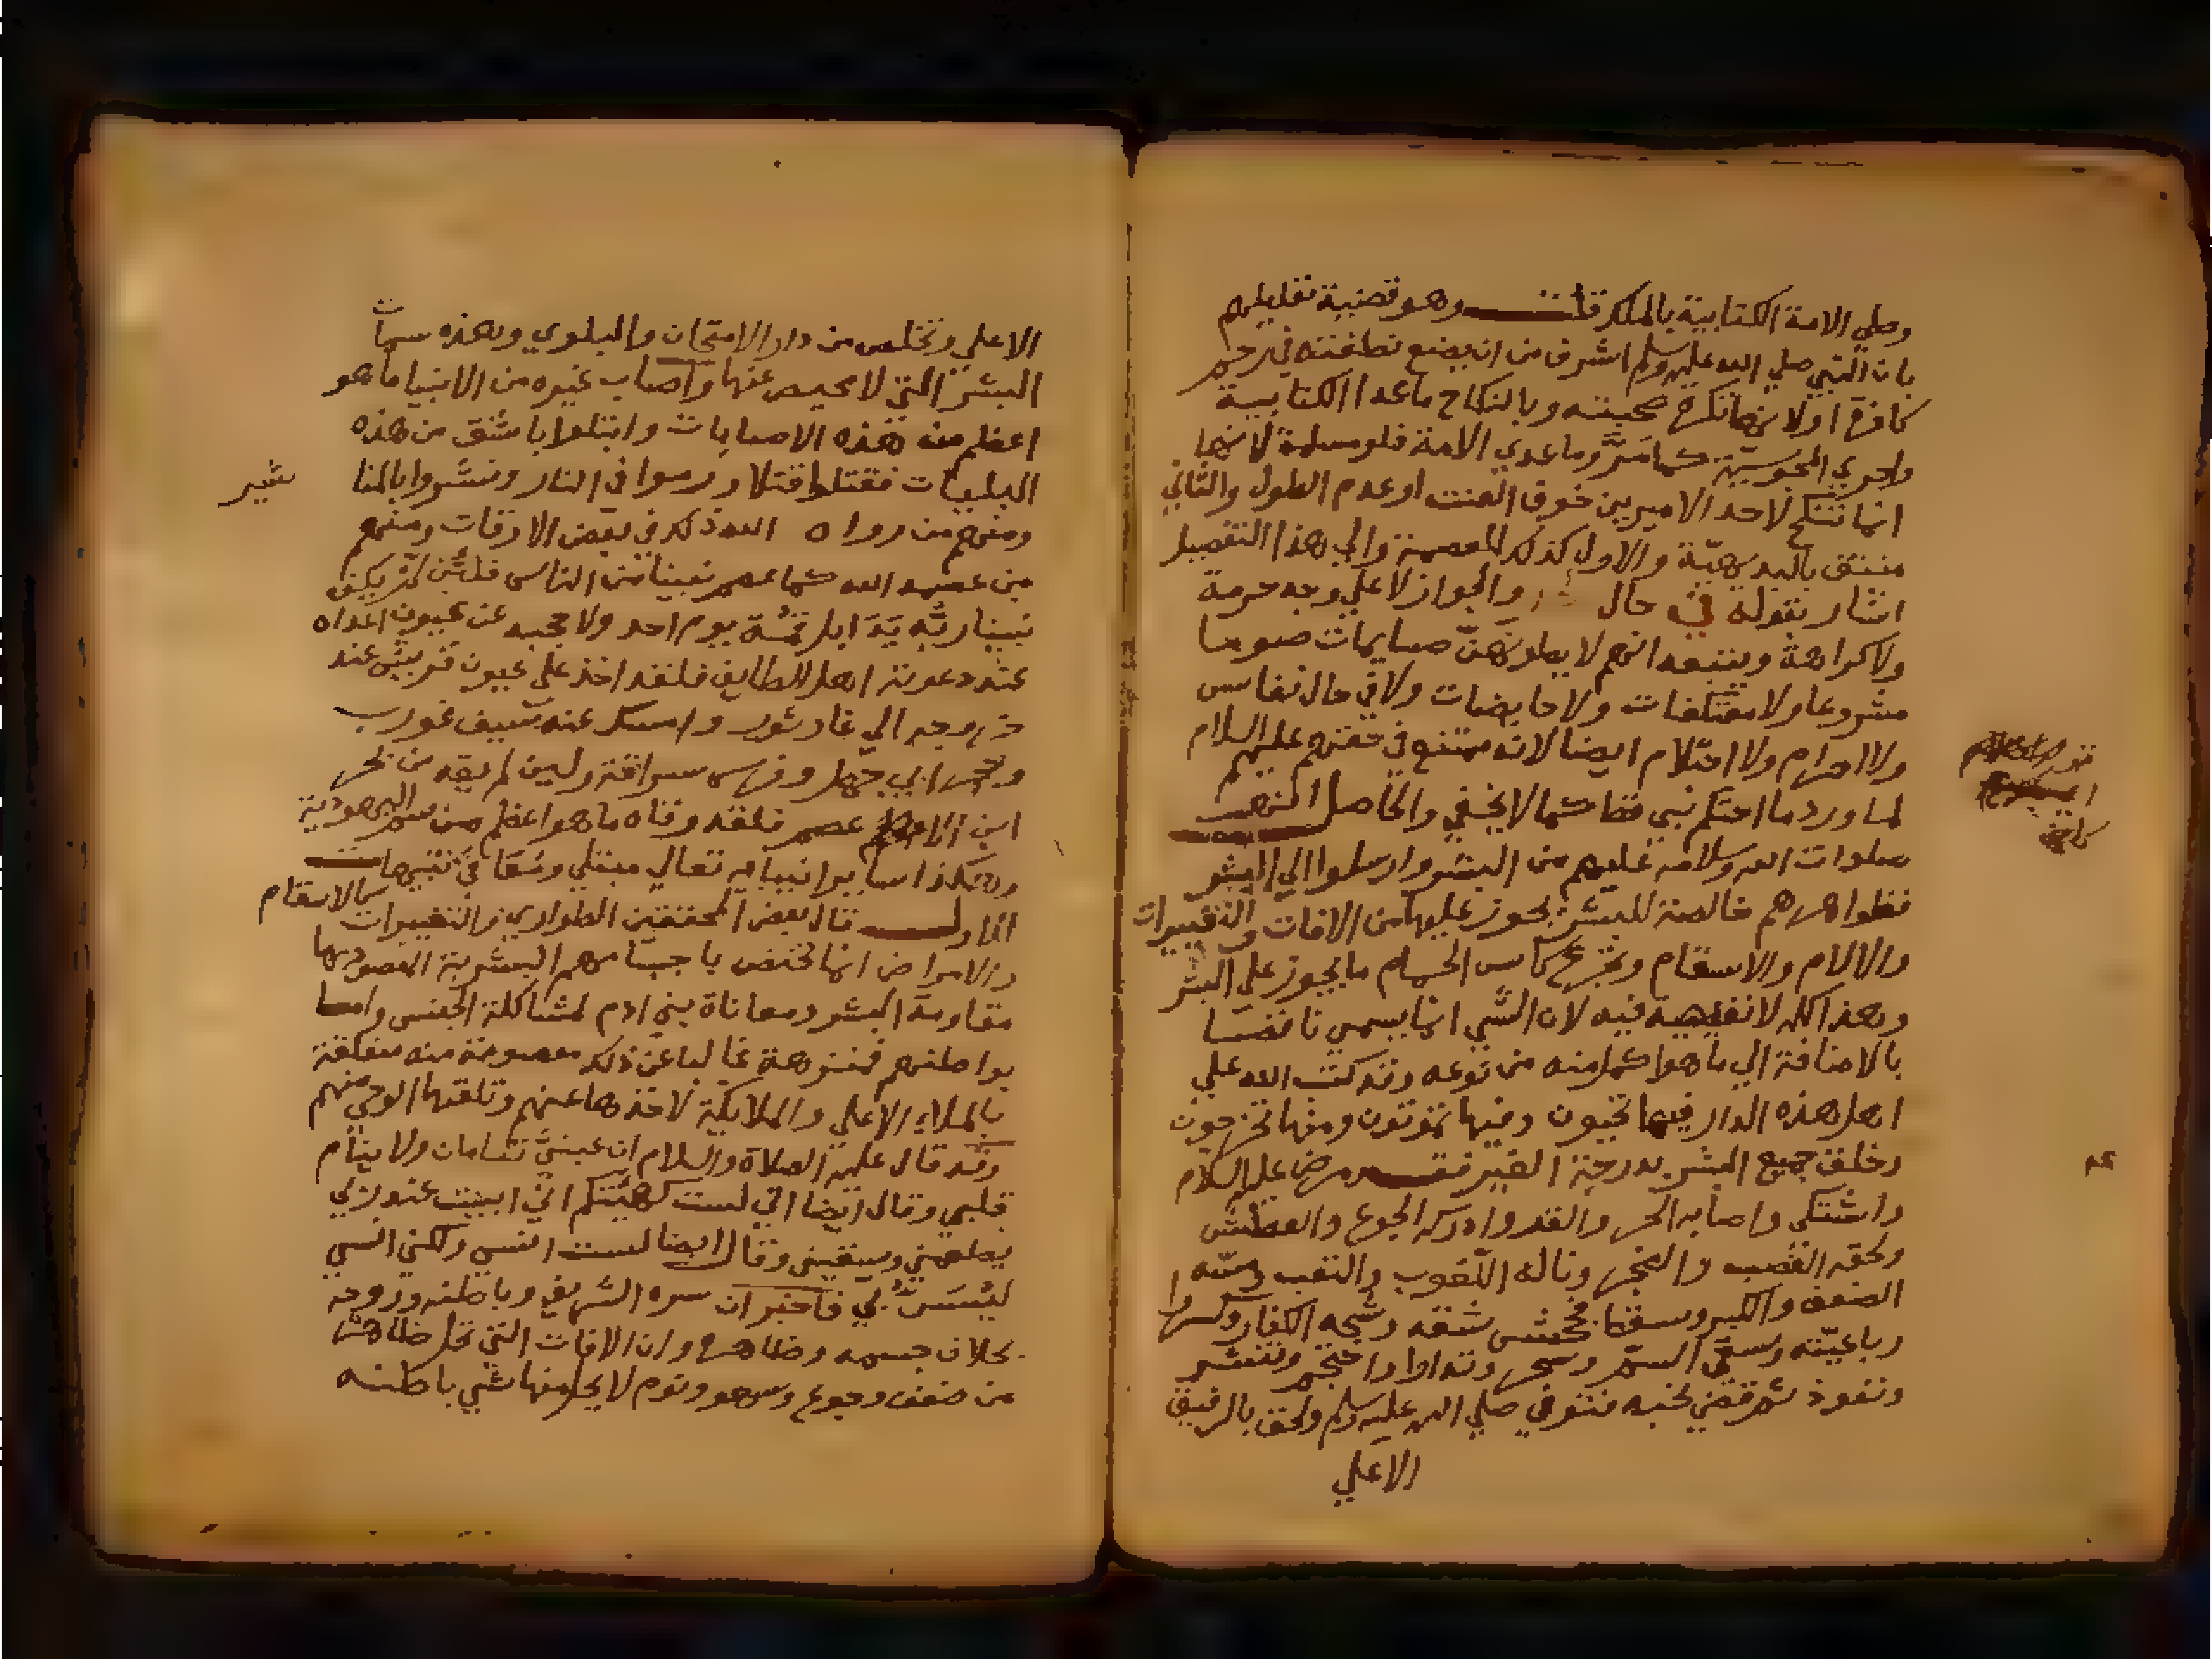 وطي الامة الكتابية بالملك قلت وهو قضية تعليلهم
بان النبي صلي الله عليه وسلم اشرف من ان يضع نطفته في رحم
كافرة اولا نها تكره صحبته وبالنكاح ماعدا الكتابية
والامة فلو مسلمة لانها
انما تنكح لاحد الاميرين خوف العنت او عدم الطول والثاني
منتف بالبديهية والاول كذلك للعصمة والي هذا التفصيل
اشار بقوله في حال والجواز لا علي وجه حرمة
ولا كراهة ويتبعد انهم لا يطونهن صايمات صوما
مشروعا ولا معتكفات ولا حايضات ولا في حال نفاس
ولا احرام ولا احتلام ايضا لانه ممتنع في حقهم عليهم السلام
لما ورد ما احتلم نبي قط كما لا يخفي والحاصل انهم
صلوات الله وسلامه عليهم من البشر وارسلوا الي البشر
فظواهرهم خالصة للبشر يجوز عليها من الافات والتغييرات
والالام والاسقام وتجرع كاس الحمام ما يجوز علي البشر
وهذا كله لا نقيصة فيه لان الشي انما يسمي ناقصا
بالاضافة الي ما هو اكمل منه من نوعه وقد كتب الله علي
اهل هذه الدار فيها تحيون وفيها تموتون ومنها تخرجون
وخلق جميع البشر بدرجة الغير فقد مرض عليه السلام
واشتكي واصابه الحر والقر وادركه الجوع والعطش
ولحقه الغضب والضجر وناله اللغوب والتعب ومسه
الضعف والكبر وسقط فجحش شقه وشجه الكفار وكسروا
رباعيته وسقي السم وسحر وتداوا واحتجم وتنشر
وتعوذ ثم قضي نحبه فتوفي صلي الله عليه وسلم ولحق بالرفيق
الاعلي
الاعلي وتخلص من دار الامتحان والبلوي وهذه سمات
البشر التي لا محيص عنها واصاب غيره من الانبيا ما هو
اعظم من هذه الاصابات وابتلوا باشق من هذه
البليات فقتلوا قتلا ورموا في النار ونشروا بالمنا
شير
ومنهم من وقاه الله ذلك في بعض الاوقات ومنهم
من عصمه الله كما عصم نبينا من الناس فلئن لم يكف
نبينا ربه يد ابن قمئة يوم احد ولا حجبه عن عيون اعداه
عند دعوته اهل الطايف فلقد اخذ علي عيون قريش عند
خروجه الي غار ثور وامسك عنه سيف غورث
وحجر ابي جهل وفرس سراقة ولين لم يقه من سحر
ابن الاعصم فلقد وقاه ما هو اعظم من سم اليهودية
وهكذا ساير انبيايه تعالي مبتلي ومعافي تنبيهات
الاول قال بعض المحققين الطواري والتغييرات كالاسقام
والامراض انما تختص باجسامهم البشرية المقصود بها
مقاومة البشر ومعاناة بني ادم لمشاكلة الجنس واما
بواطنهم فمنزهة غالبا عن ذلك معصومة منه متعلقة
بالملاء الاعلي والملايكة لاخذها عنهم وتلقيها الوحي منهم
وقد قال عليه الصلاة والسلام ان عيني تنامان ولا ينام
قلبي وقال ايضا اني لست كهيئتكم اني ابيت عند ربي
يطعمني ويسقيني وقال ايضا لست انسي ولكني انسي
ليستن بي فاخبر ان سره الشريف وباطنه وروحه
بخلاف جسمه وظاهره وان الافات التي تحل ظاهره
من ضعف وجوع وسهو ونوم لا يحل منها شي باطنه